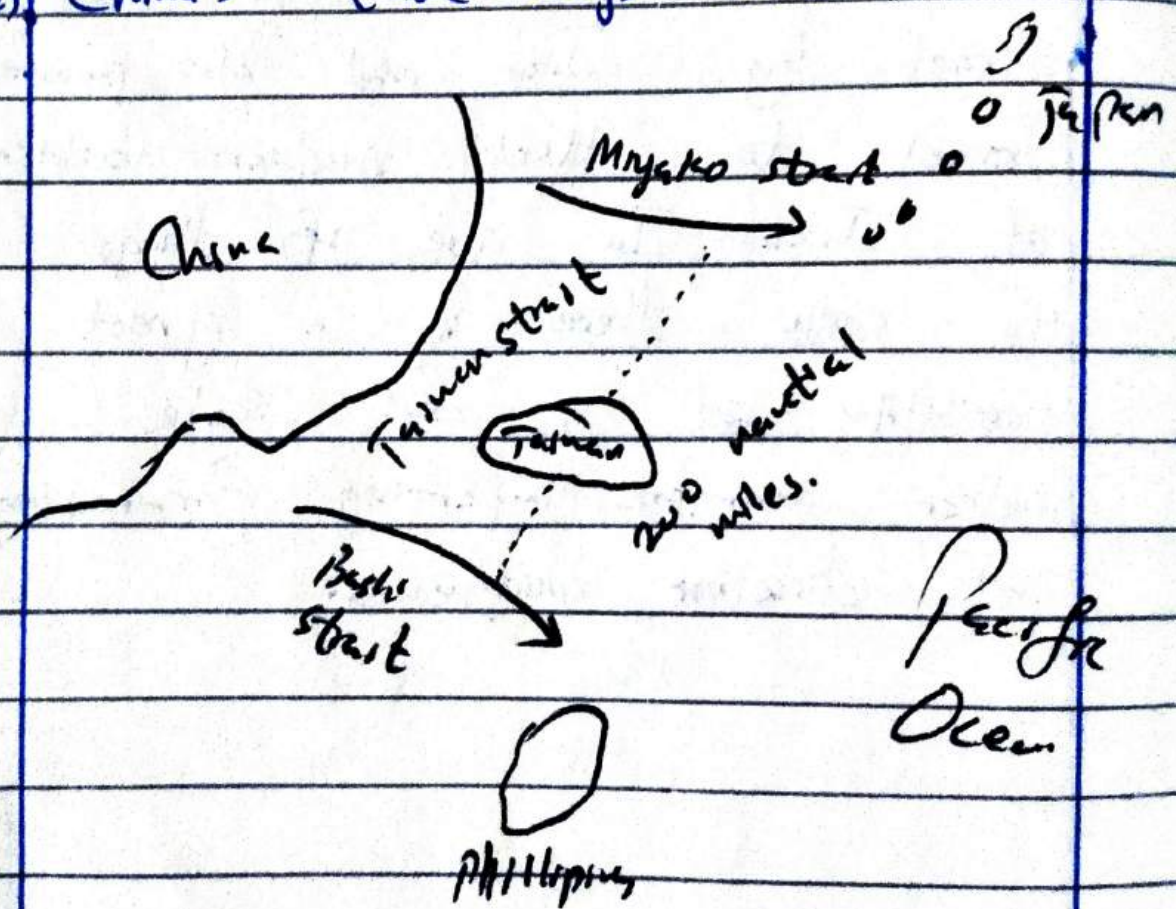 Japan
Miyako strait
China
Taiwan strait
Taiwan
200 nautical
miles.
Bashi
strait
Pacific
Ocean
Phillipins